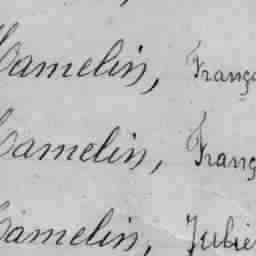 Hamelin, Franç
Hamelin, Franç
Hamelin, Julie